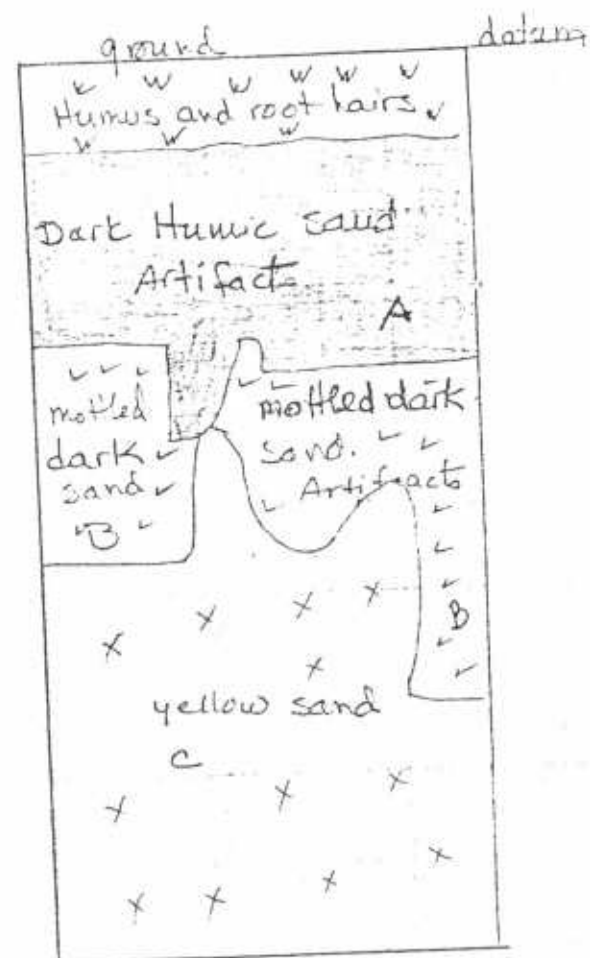 ground
datum
Humus and root hairs
Dark Humic sand
Artifacts
A
mottled
dark
sand
B
mottled dark
sand.
Artifacts
B
yellow sand
C